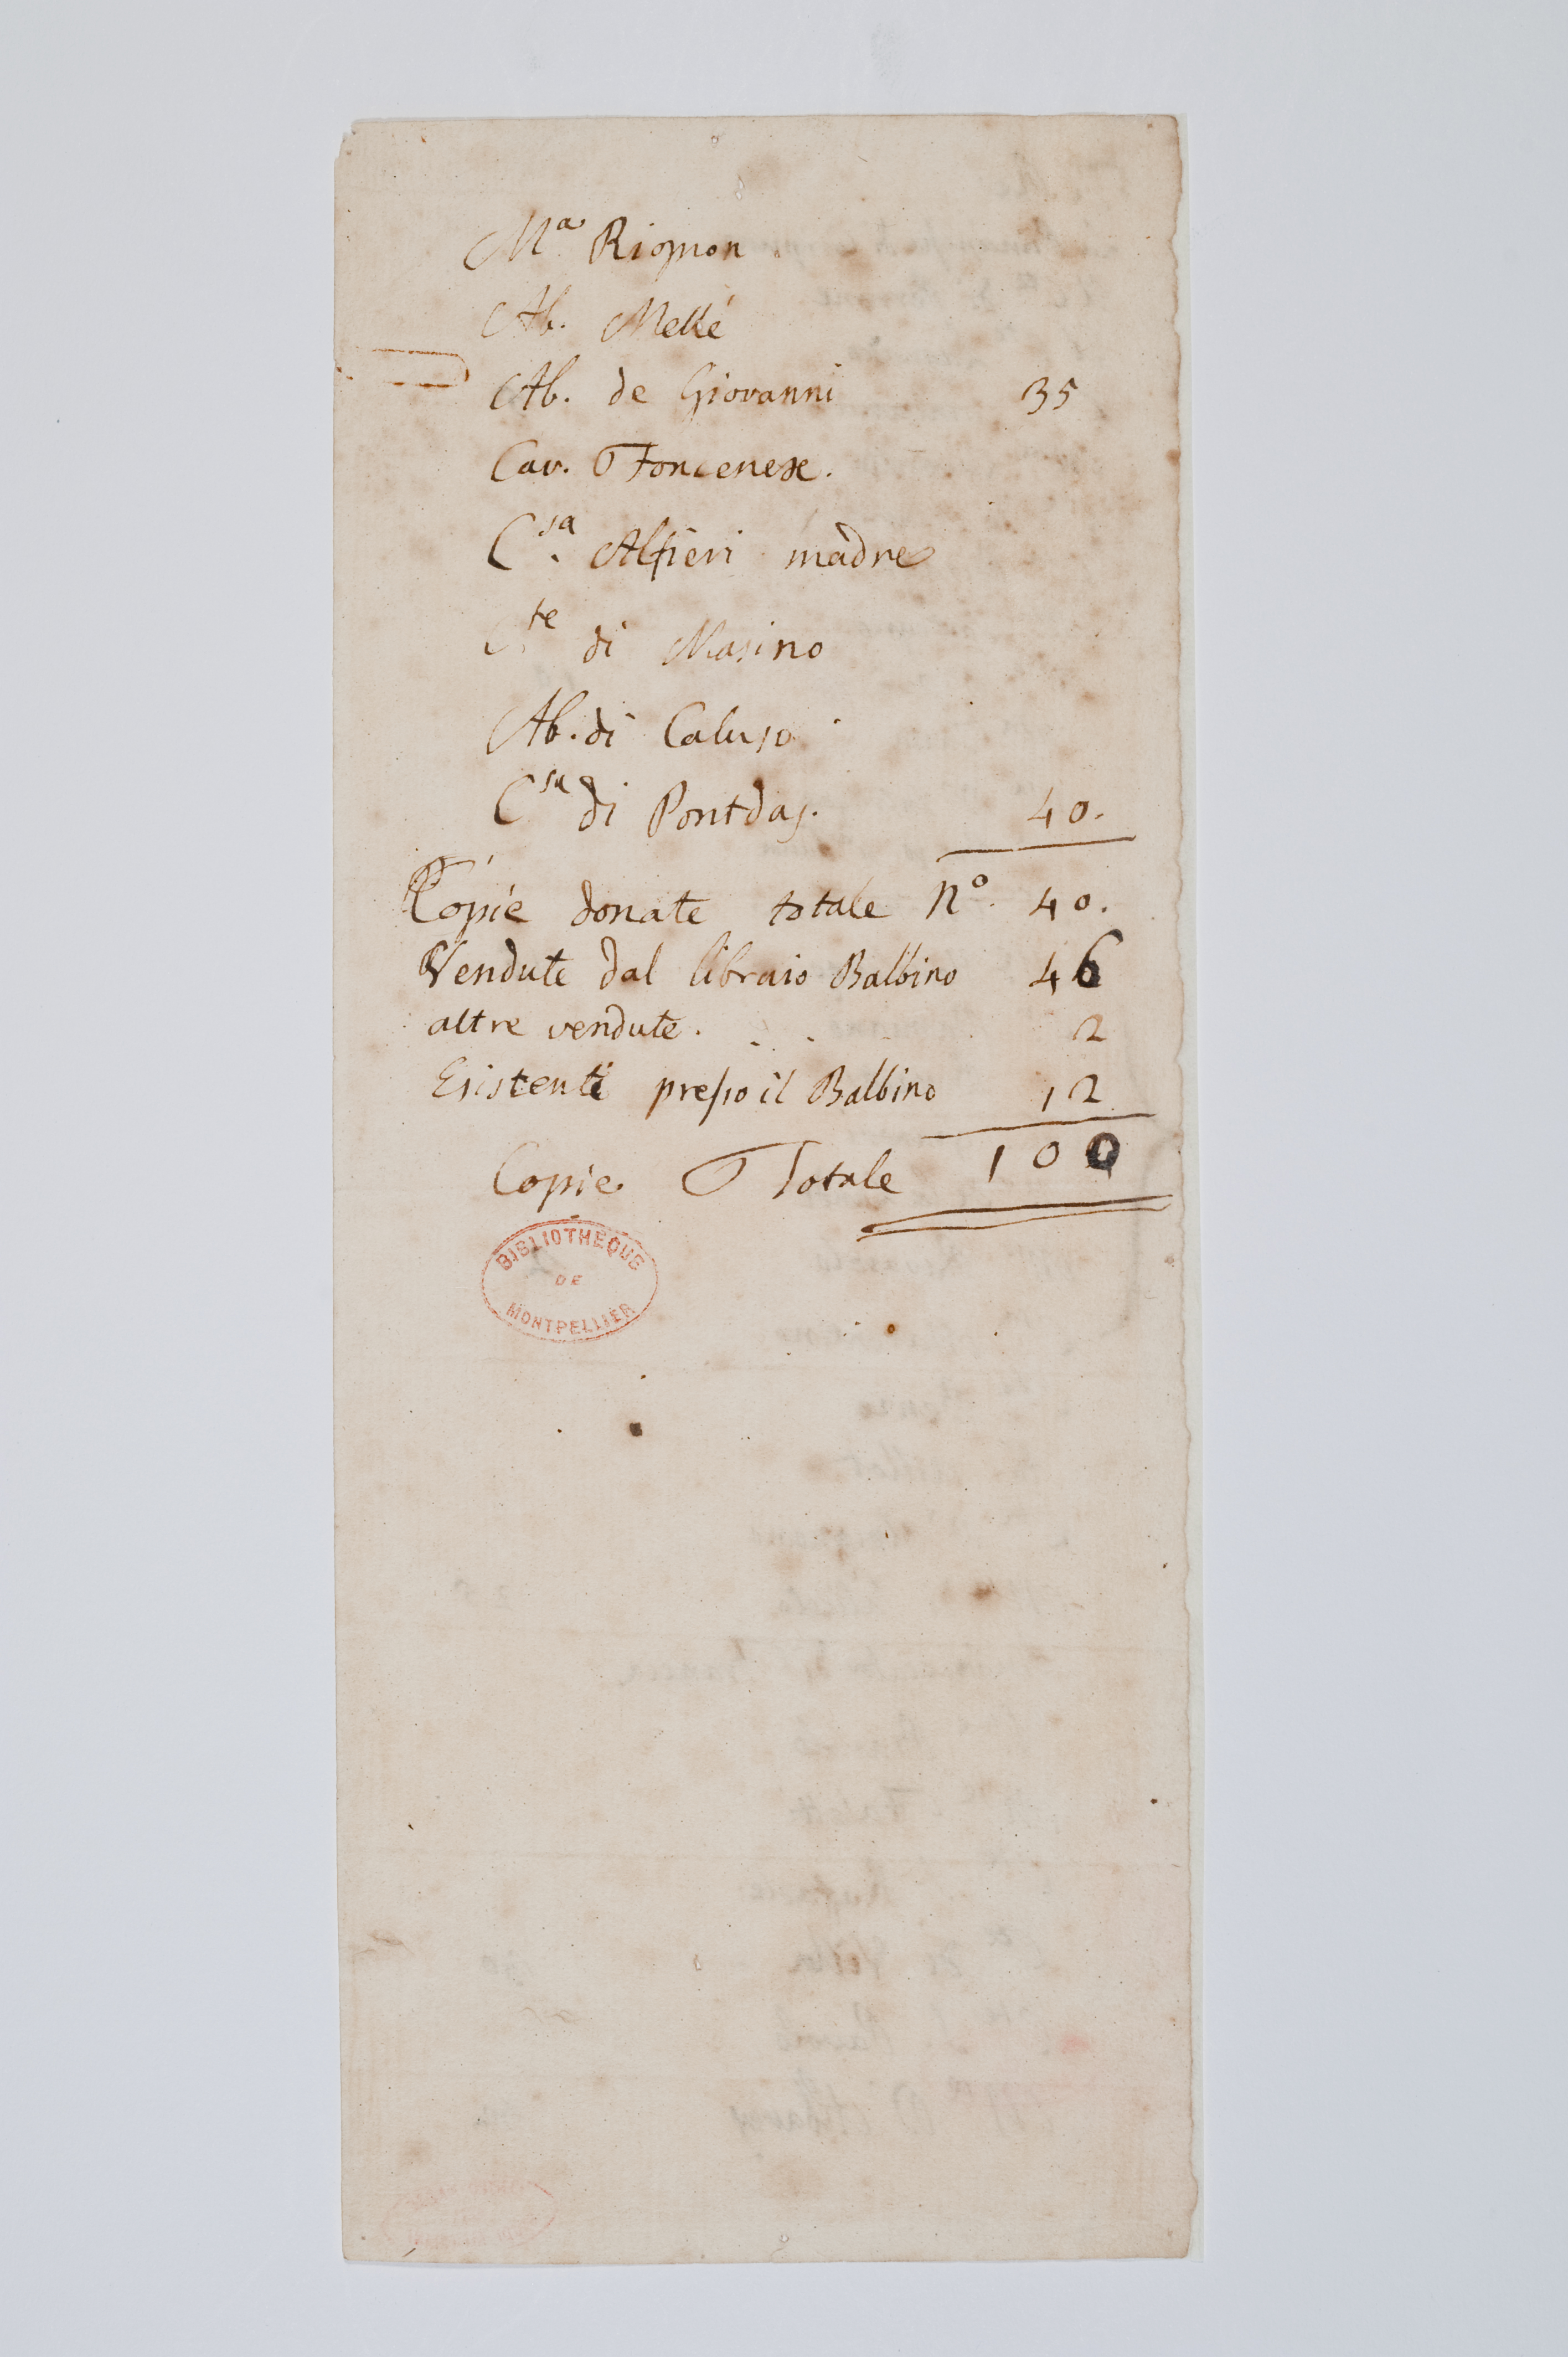 Ma Rignon
Ab. Mellé
Ab. de Giovanni 35
Cav. Foncenex.
Csa. Alfieri madre
Cte di Masino
Ab. di Caluso
Csa di Pontdas. 40.
Copie donate totale No. 40.
Vendute dal libraio Balbino 46
altre vendute. . . . 2
Esistenti presso il Balbino 12
Copie Totale 100
BIBLIOTHÈQUE
DE
MONTPELLIER